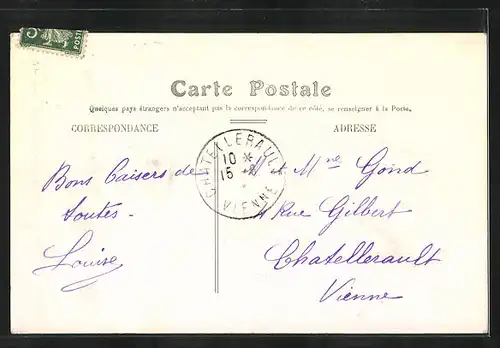 Carte Postale
Quelques pays étrangers n'acceptant pas la correspondance de ce côté, se renseigner à la Poste.
CORRESPONDANCE
ADRESSE
CHATELLERAULT
10 *
15
VIENNE
Bons Baisers de
toutes -
Louise
M et Mme Gond
4 Rue Gilbert
Chatellerault
Vienne